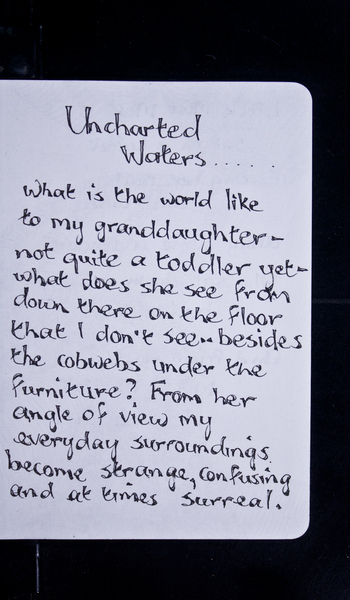 Uncharted
Waters......
What is the world like
to my granddaughter-
not quite a toddler yet-
what does she see from
down there on the floor
that I don't see..besides
the cobwebs under the
furniture? From her
angle of view my
everyday surroundings
become strange, confusing
and at times surreal.